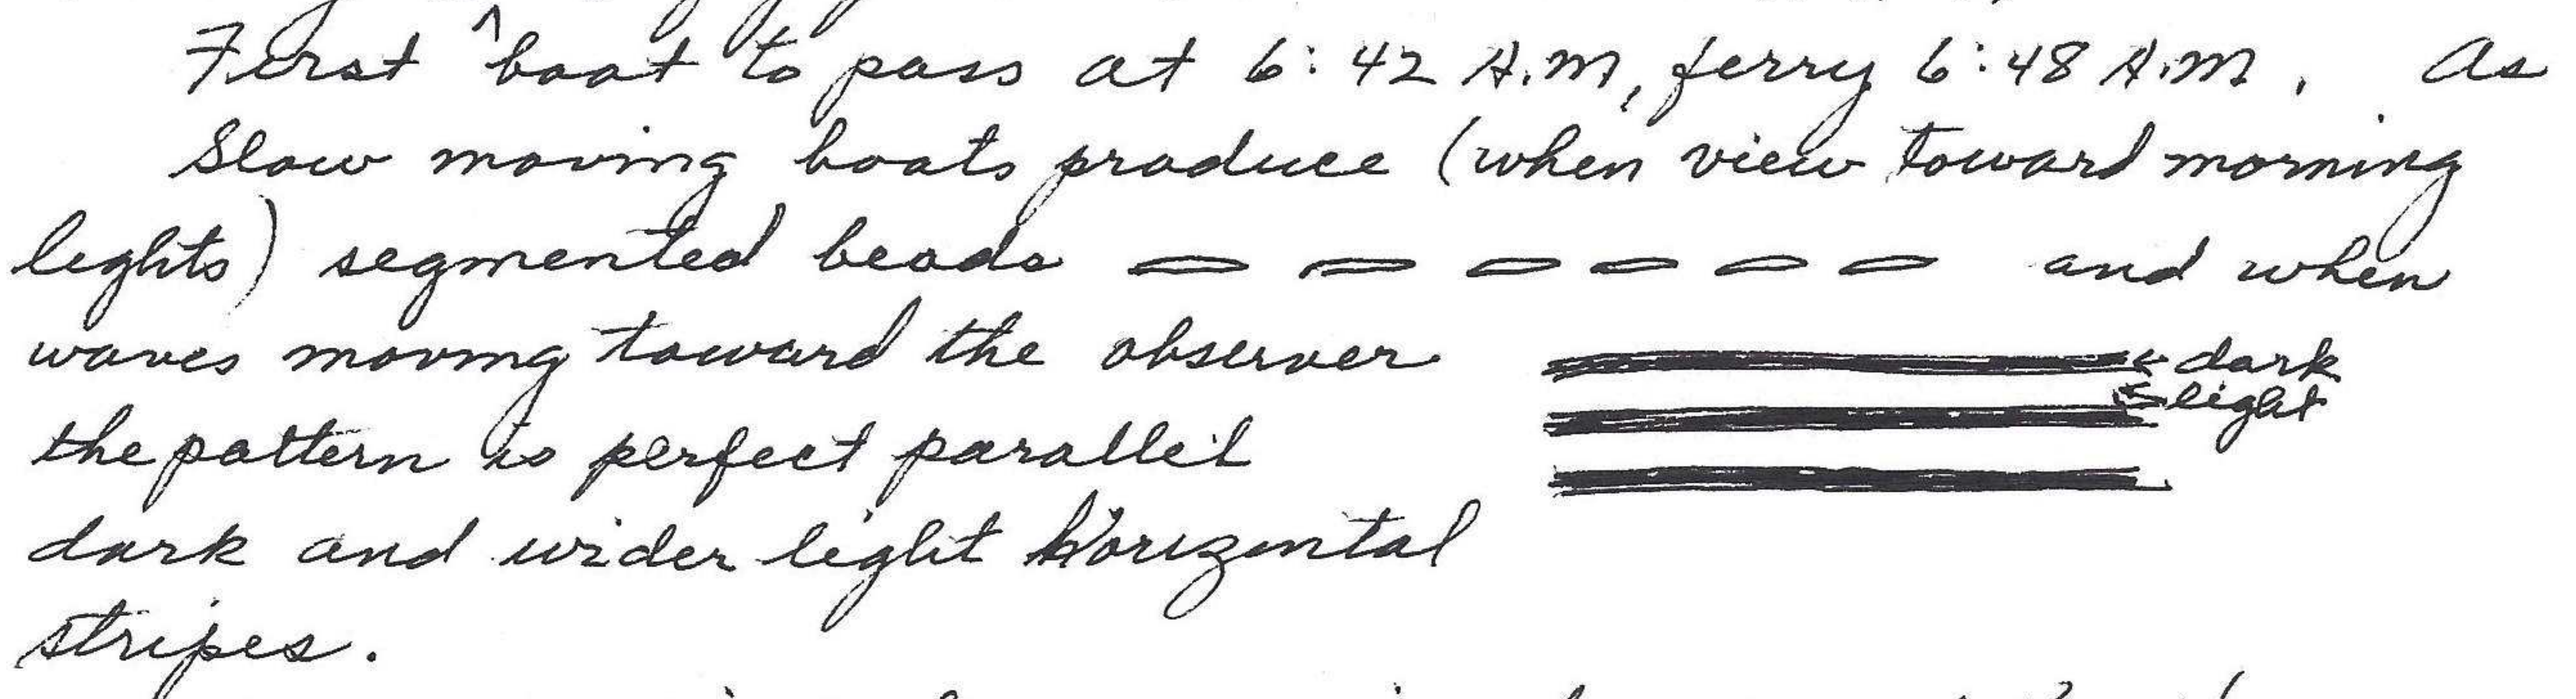 First ^ boat to pass at 6:42 A.M, ferry 6:48 A.M. As
Slow moving boats produce (when view toward morning
lights) segmented beads and when
waves moving toward the observer
← dark
← light
the pattern is perfect parallel
dark and wider light Horizontal
stripes.